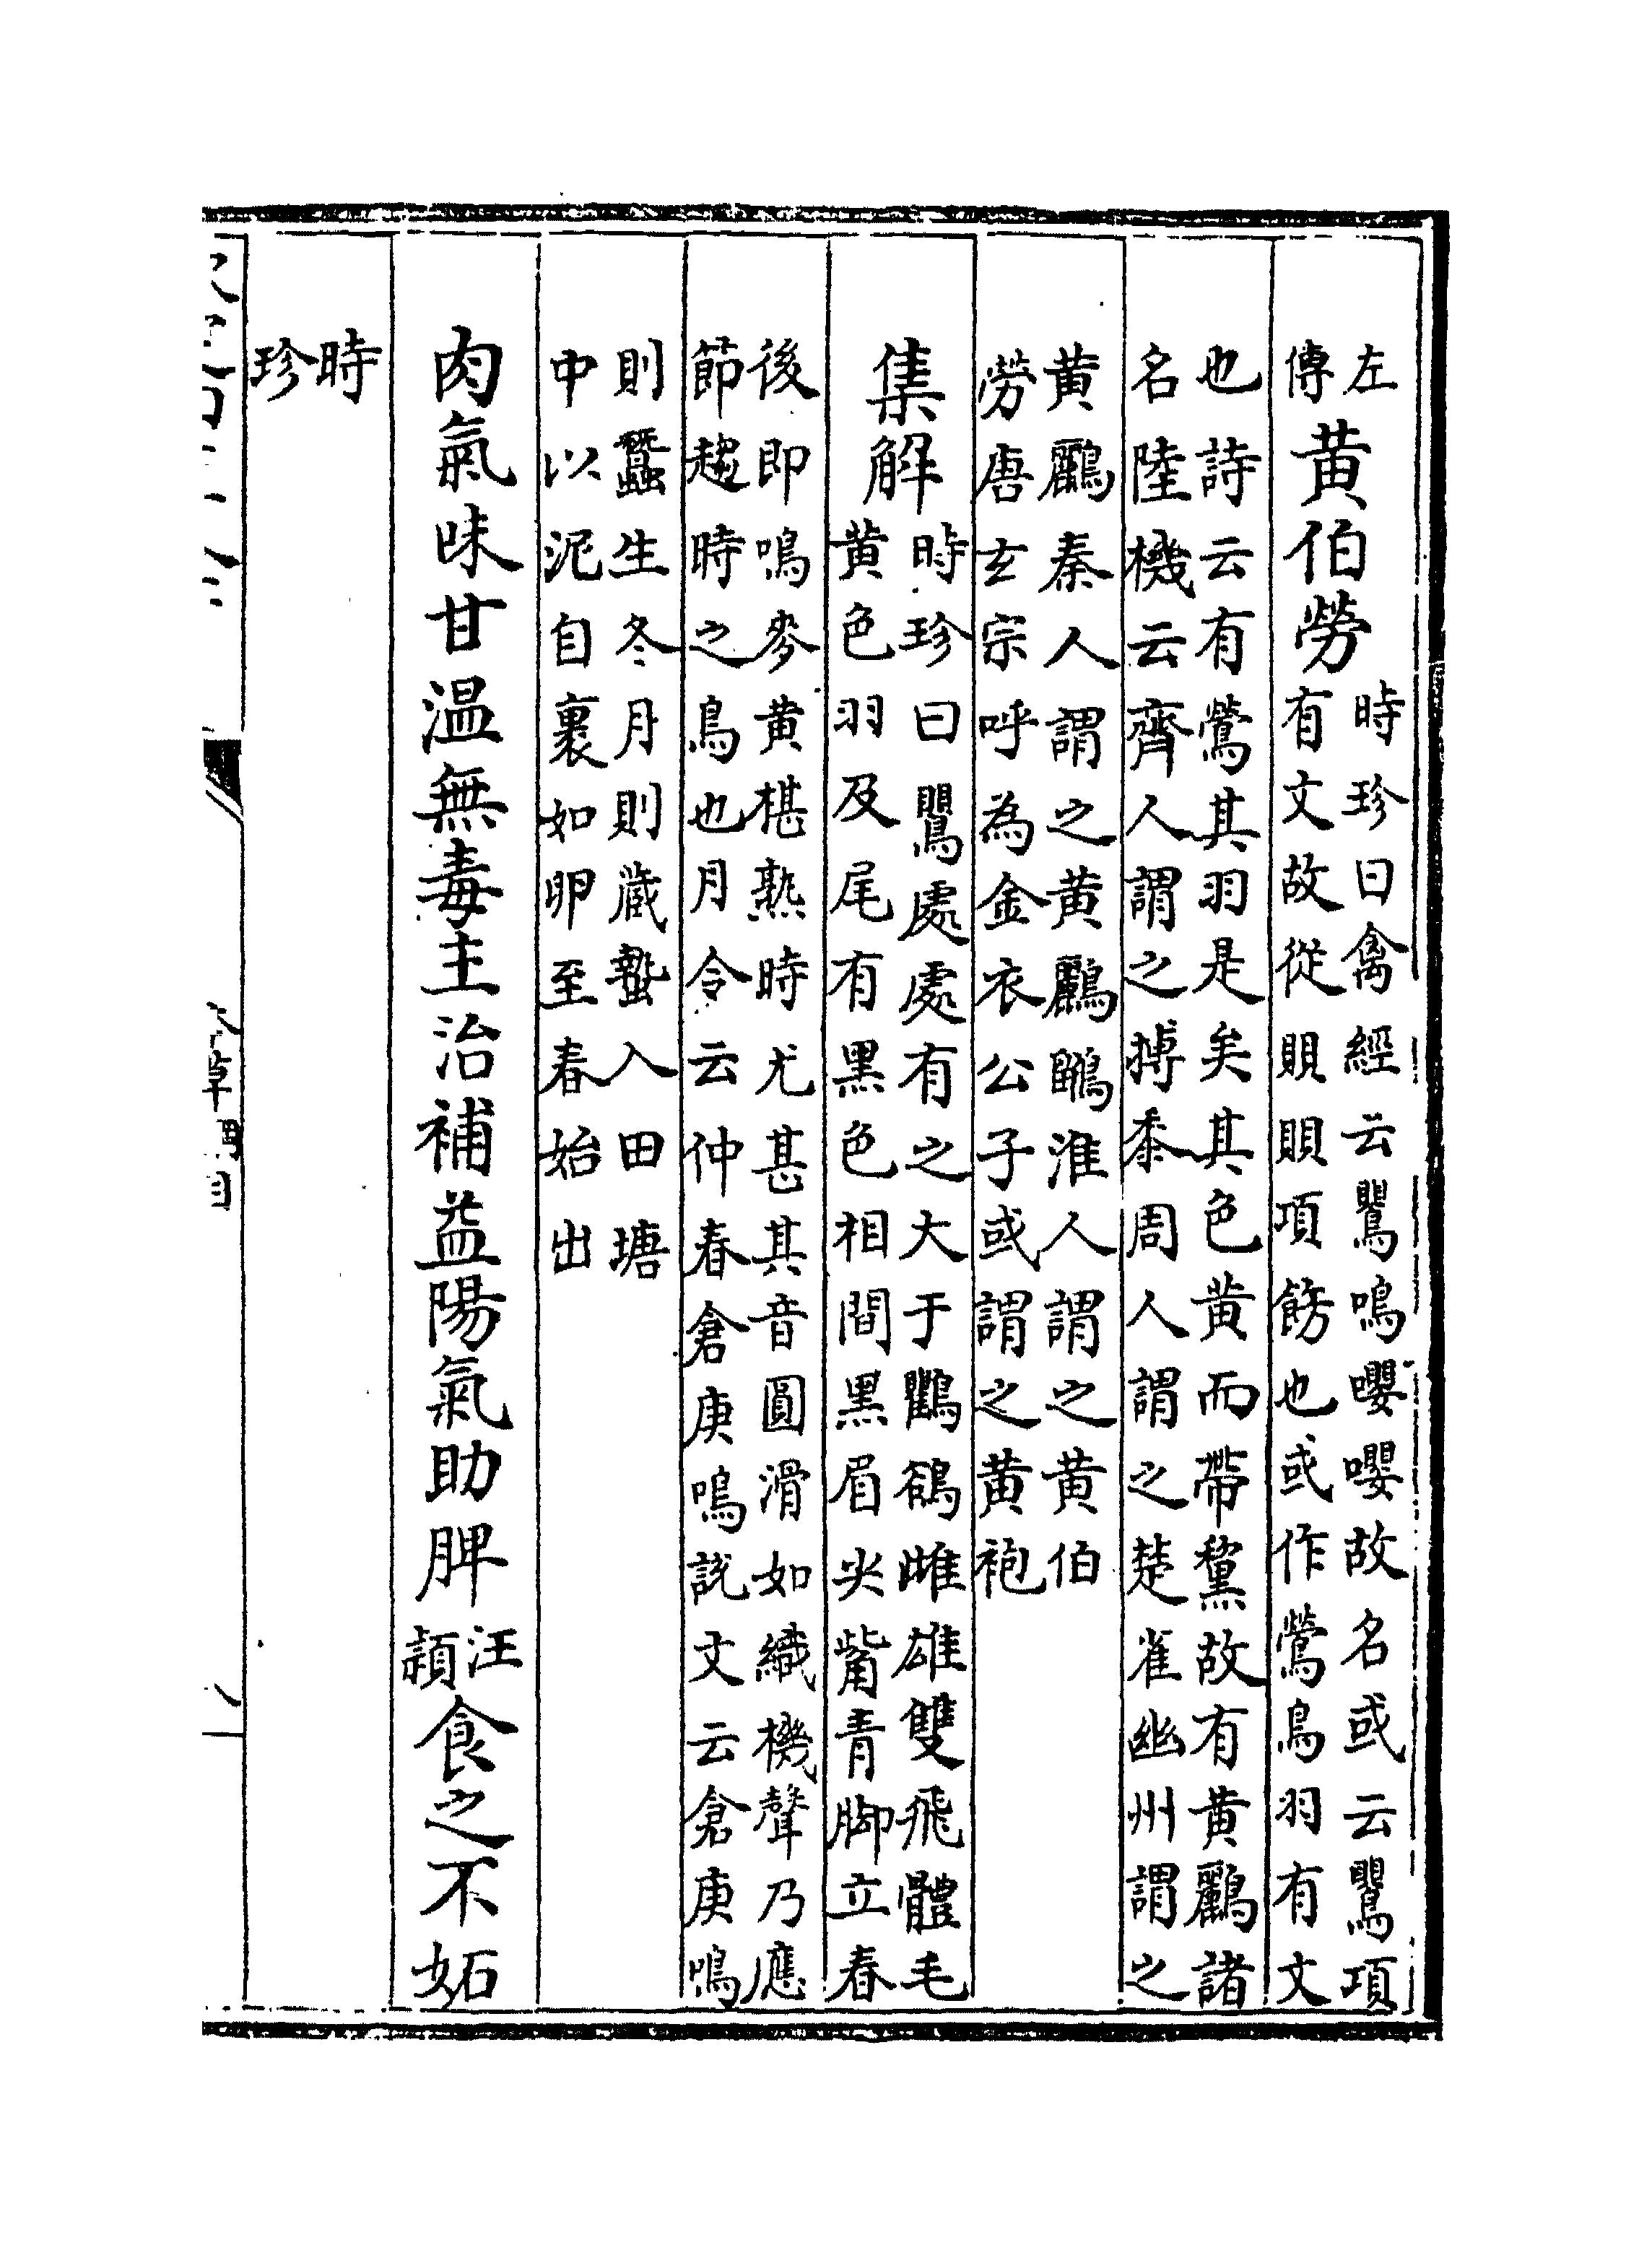 左傳黄伯勞時珍曰禽經云鸎鳴嚶嚶故名或云鸎項有文故從賏賏項飾也或作鶯鳥羽有文
也詩云有鶯其羽是矣其色黄而帶黧故有黄鸝諸名陸機云齊人謂之搏黍周人謂之楚雀幽州謂之
黄鸝秦人謂之黄鸝鶹淮人謂之黄伯勞唐玄宗呼為金衣公子或謂之黄袍
集解時珍曰鸎處處有之大于鸜鵒雌雄雙飛體毛黄色羽及尾有黑色相間黑眉尖觜青脚立春
後即鳴麥黄椹熟時尤甚其音圓滑如織機聲乃應節趨時之鳥也月令云仲春倉庚鳴說文云倉庚鳴
則蠶生冬月則藏蟄入田塘中以泥自裹如卵至春始出
肉氣味甘温無毒主治補益陽氣助脾汪頴食之不妬
時珍